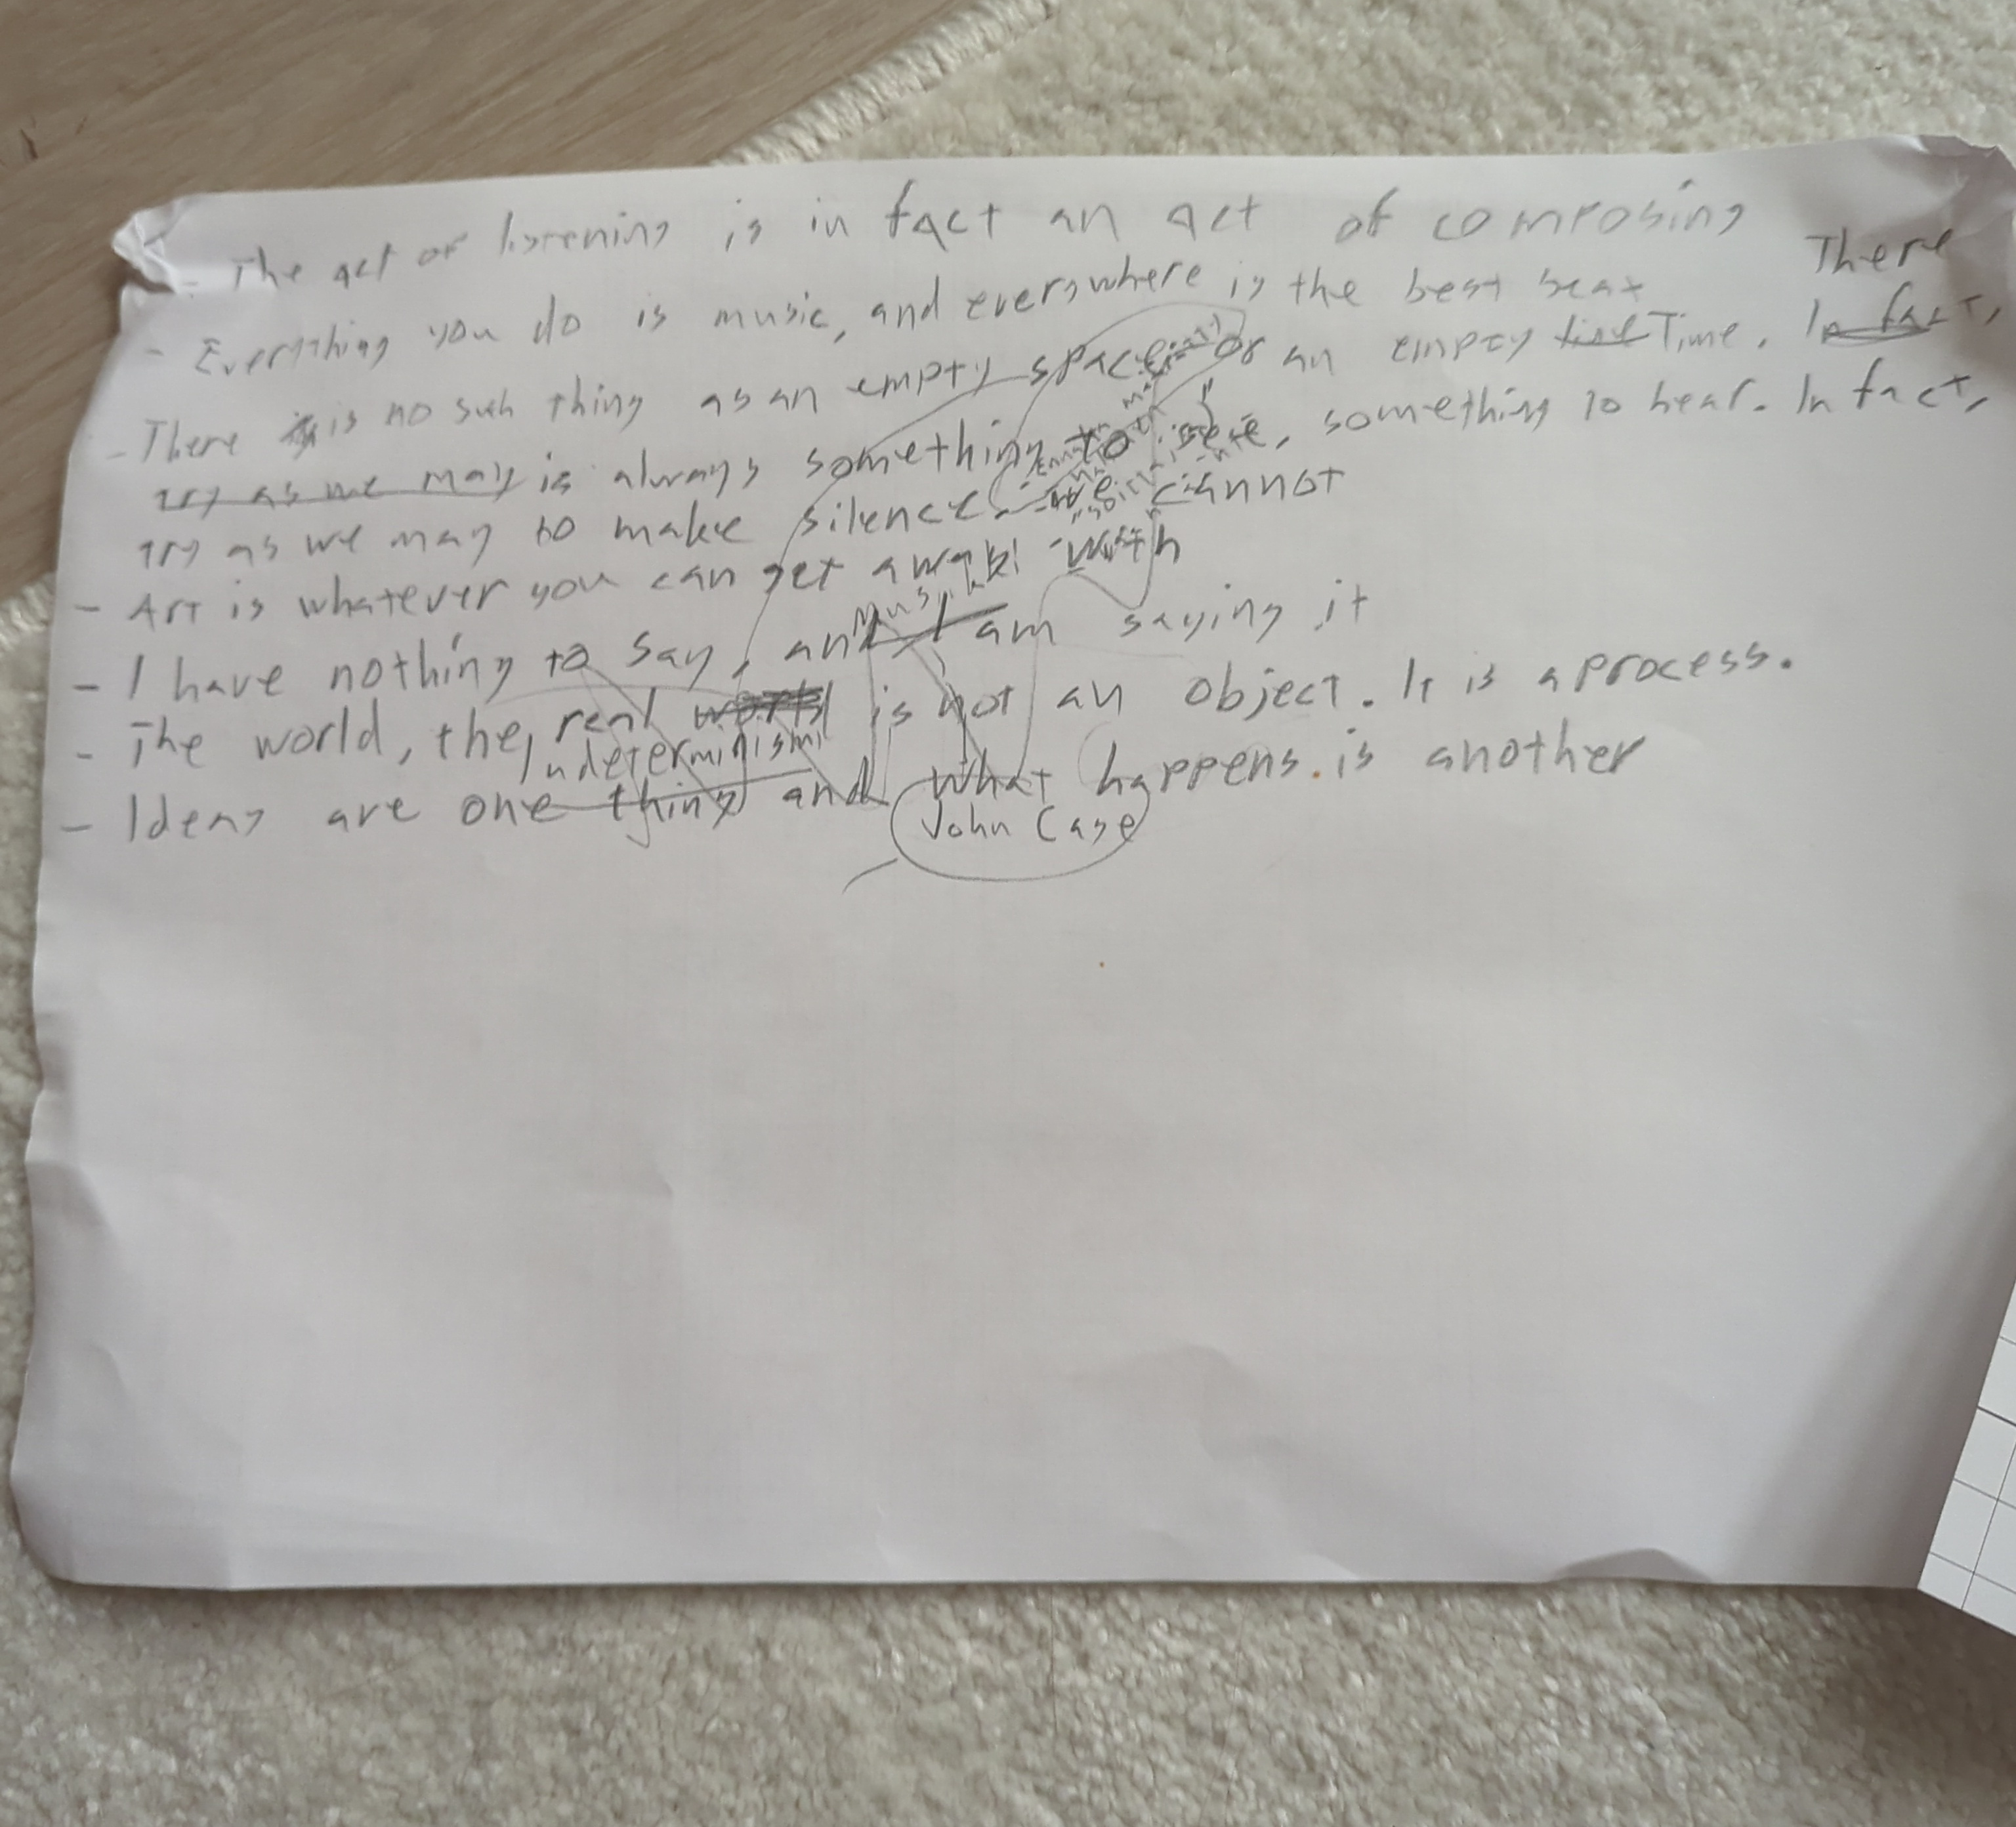 - The act of listening is in fact an act of composing
- Everything you do is music, and everywhere is the best seat
There
- There is no such thing as an empty space or an empty time Time. In fact,
try as we may is always something to see, something to hear. In fact,
try as we may to make silence we cannot
- Art is whatever you can get away with
- I have nothing to say, and I am saying it
- The world, the real world is not an object. It is a process.
Indeterminism
- Ideas are one thing and what happens. is another
John Cage